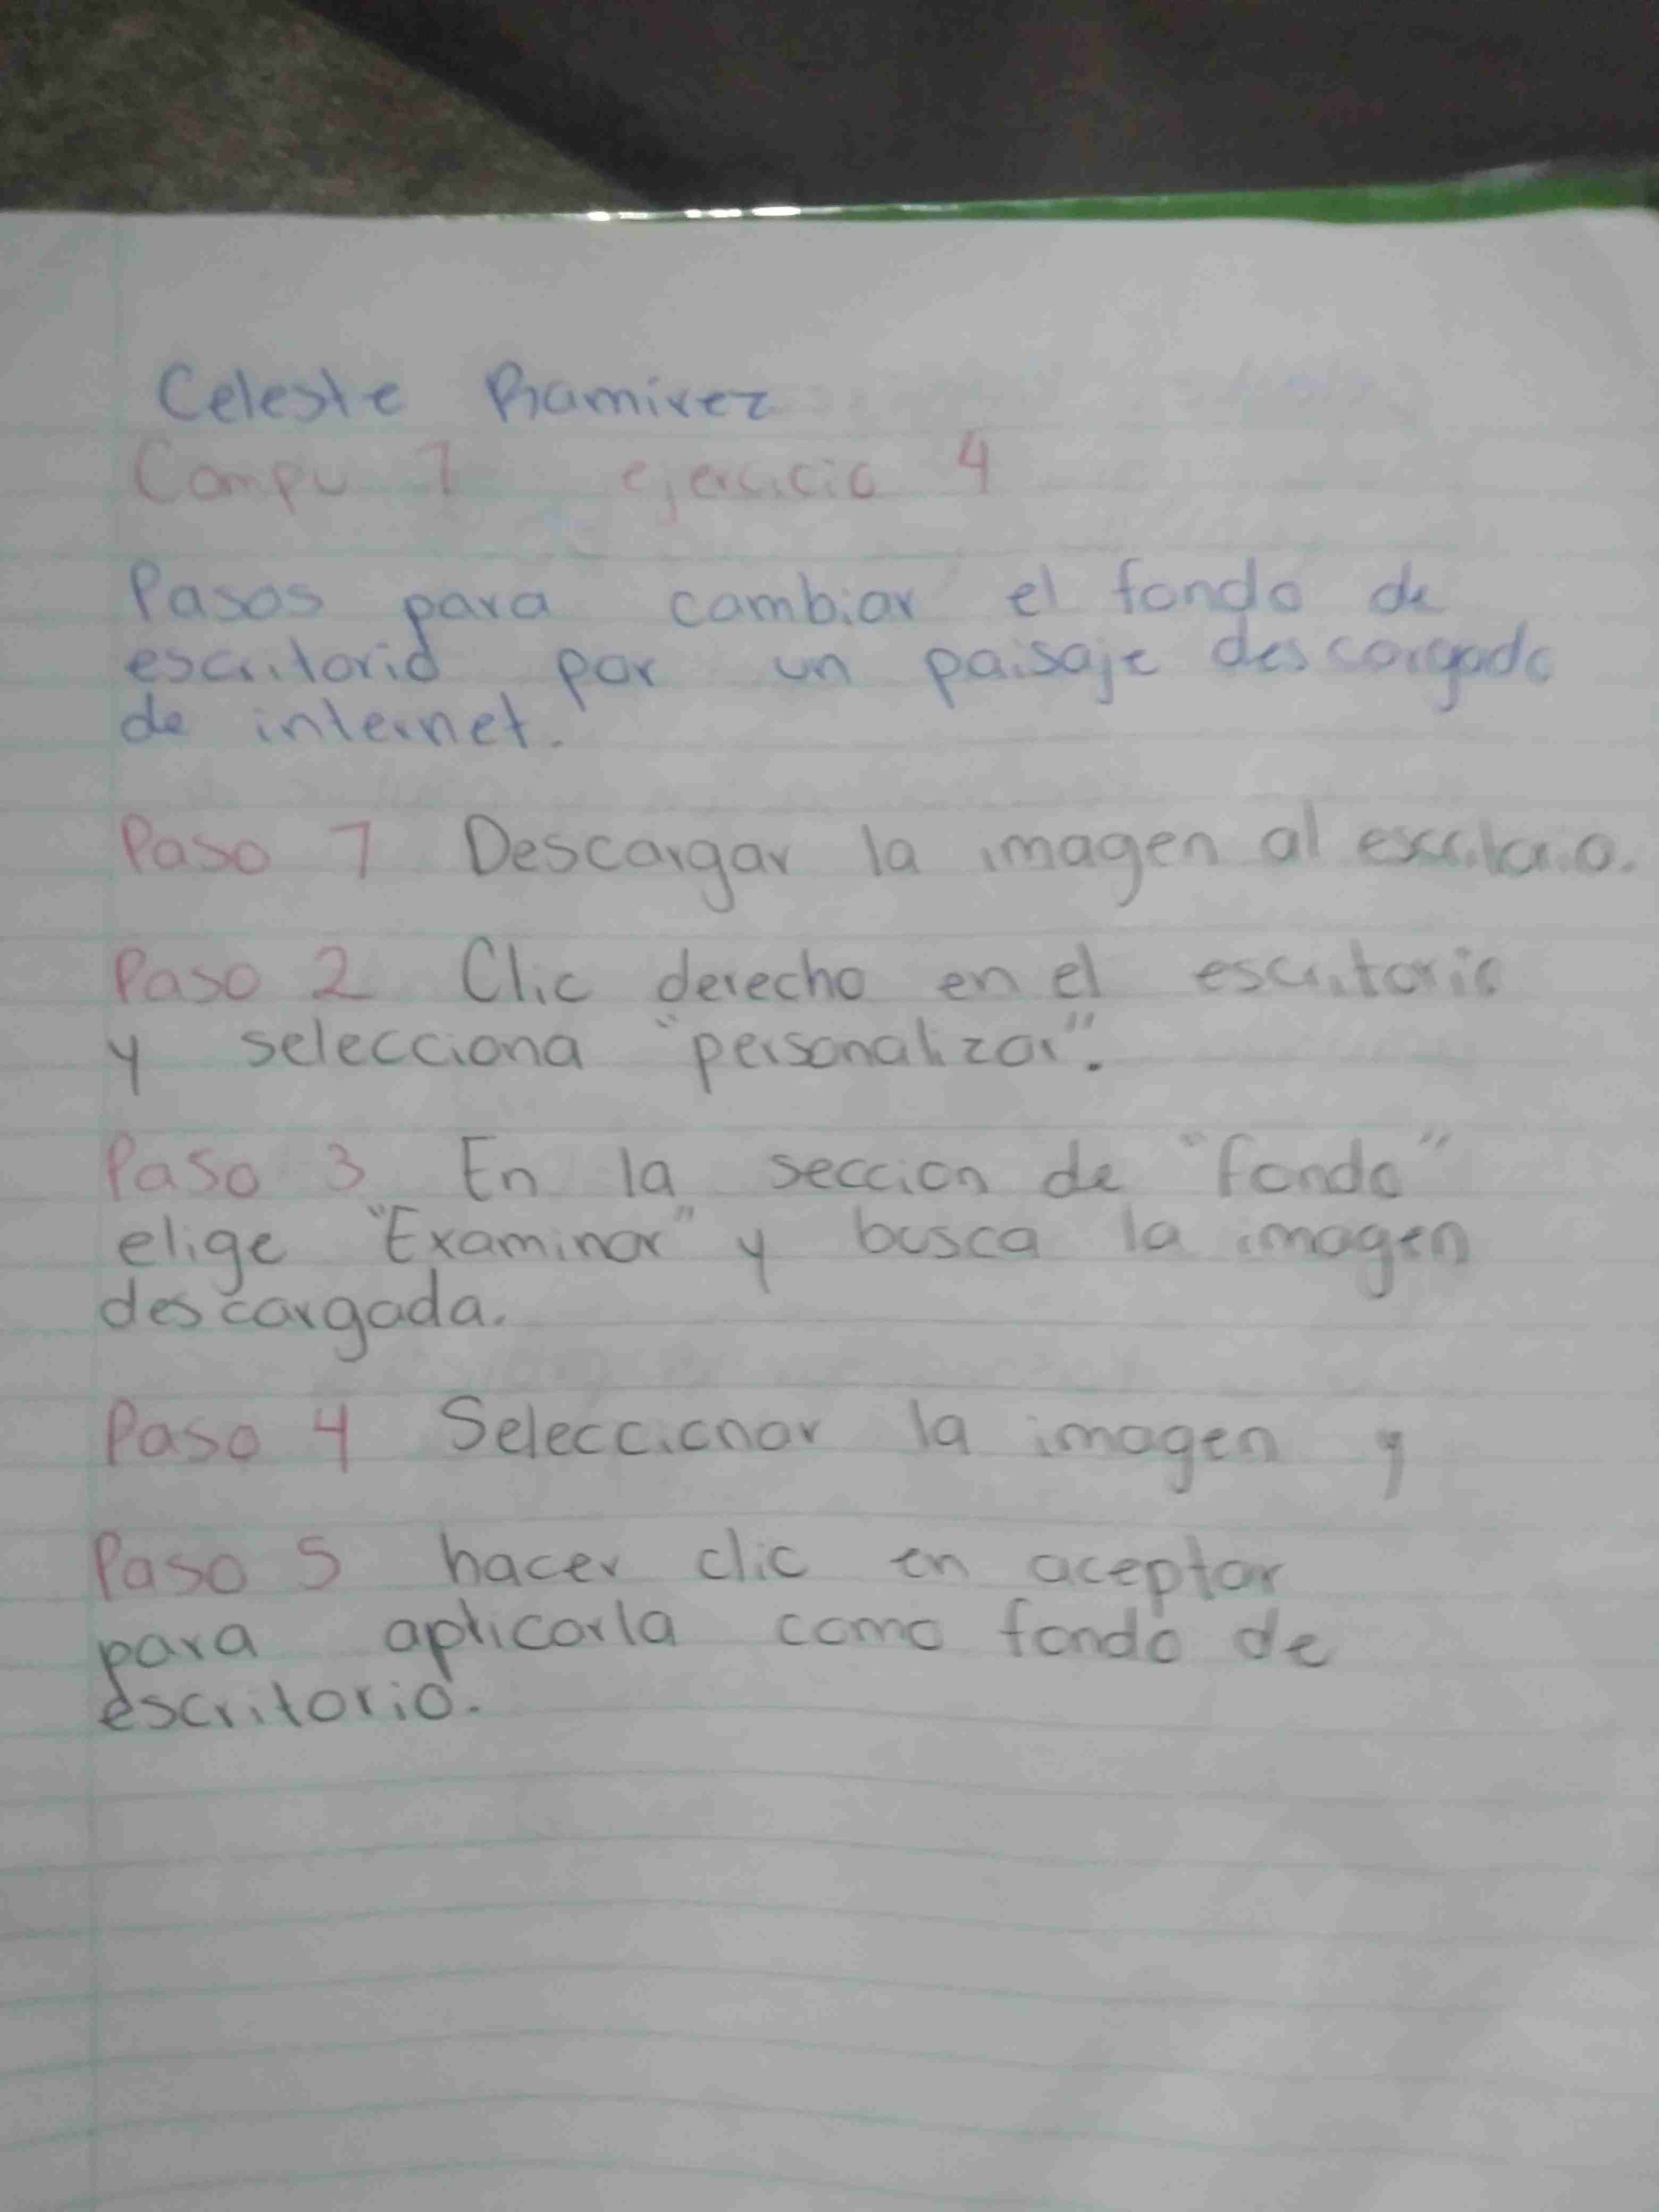 Celeste Ramirez
Compu 1 ejercicio 4
Pasos para cambiar el fondo de
escritorio por un paisaje descargado
de internet.
Paso 1 Descargar la imagen al escritorio.
Paso 2 Clic derecho en el escritorio
y selecciona "personalizar".
Paso 3 En la seccion de "fondo"
elige "Examinar" y busca la imagen
descargada.
Paso 4 Seleccionar la imagen y
Paso 5 hacer clic en aceptar
para aplicarla como fondo de
escritorio.